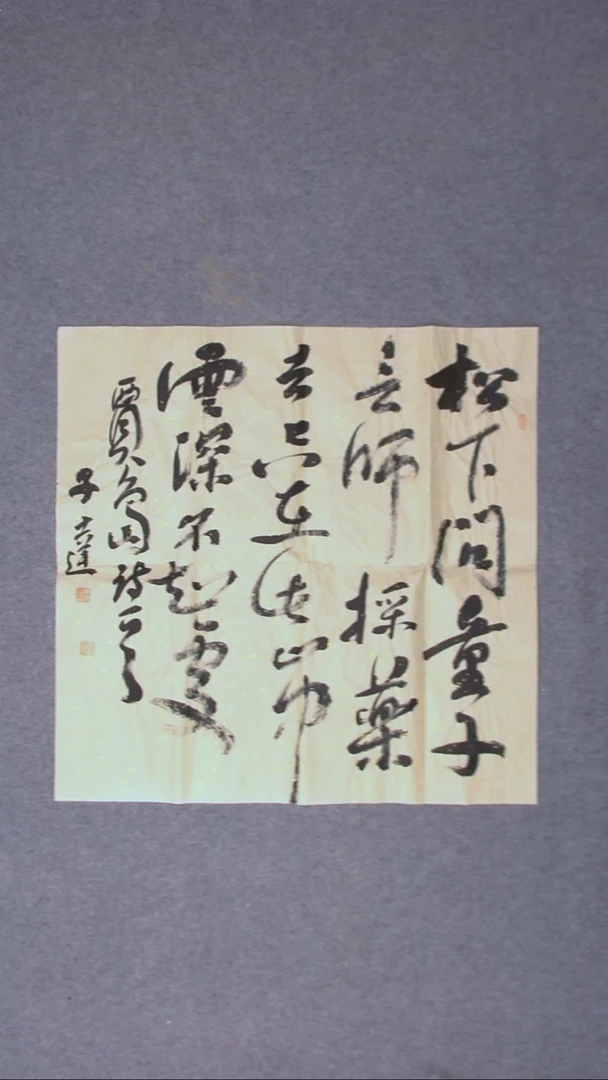 松下問童子
言師採藥
去只在此山中
雲深不知處
賈島尋詩一首